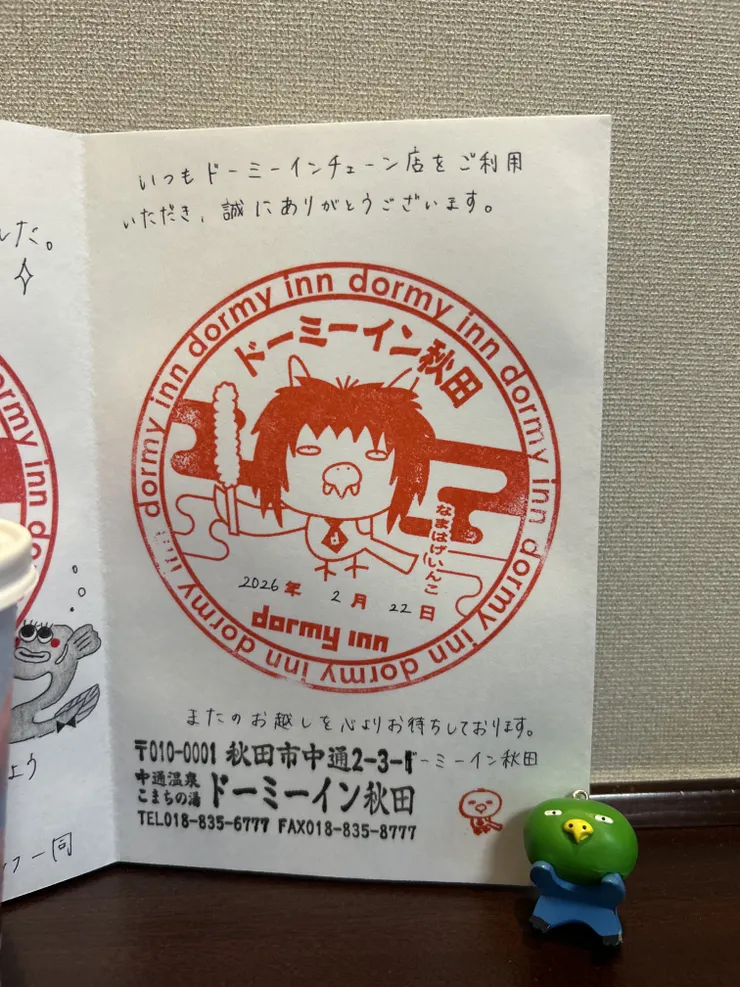 いつもドーミーインチェーン店をご利用
いただき、誠にありがとうございます。
した。
dormy inn dormy inn dormy inn dormy inn dormy inn dormy inn dormy inn dormy inn
ドーミーイン秋田
なまはげいんこ
2026年 2月 22日
dormy inn
またのお越しを心よりお待ちしております。
ドーミーイン秋田
〒010-0001 秋田市中通2-3-1
中通温泉
こまちの湯 ドーミーイン秋田
TEL018-835-6777 FAX018-835-8777
ormy inn do
よう
フ一同